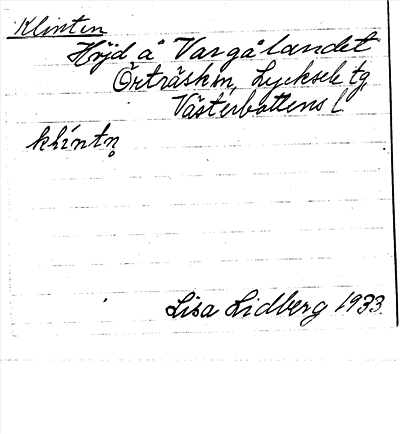 Klinten
Höjd å Vargålandet
Örträsk sn, Lycksele tg,
Västerbottens l
klintn̥
Lisa Lidberg 1933.